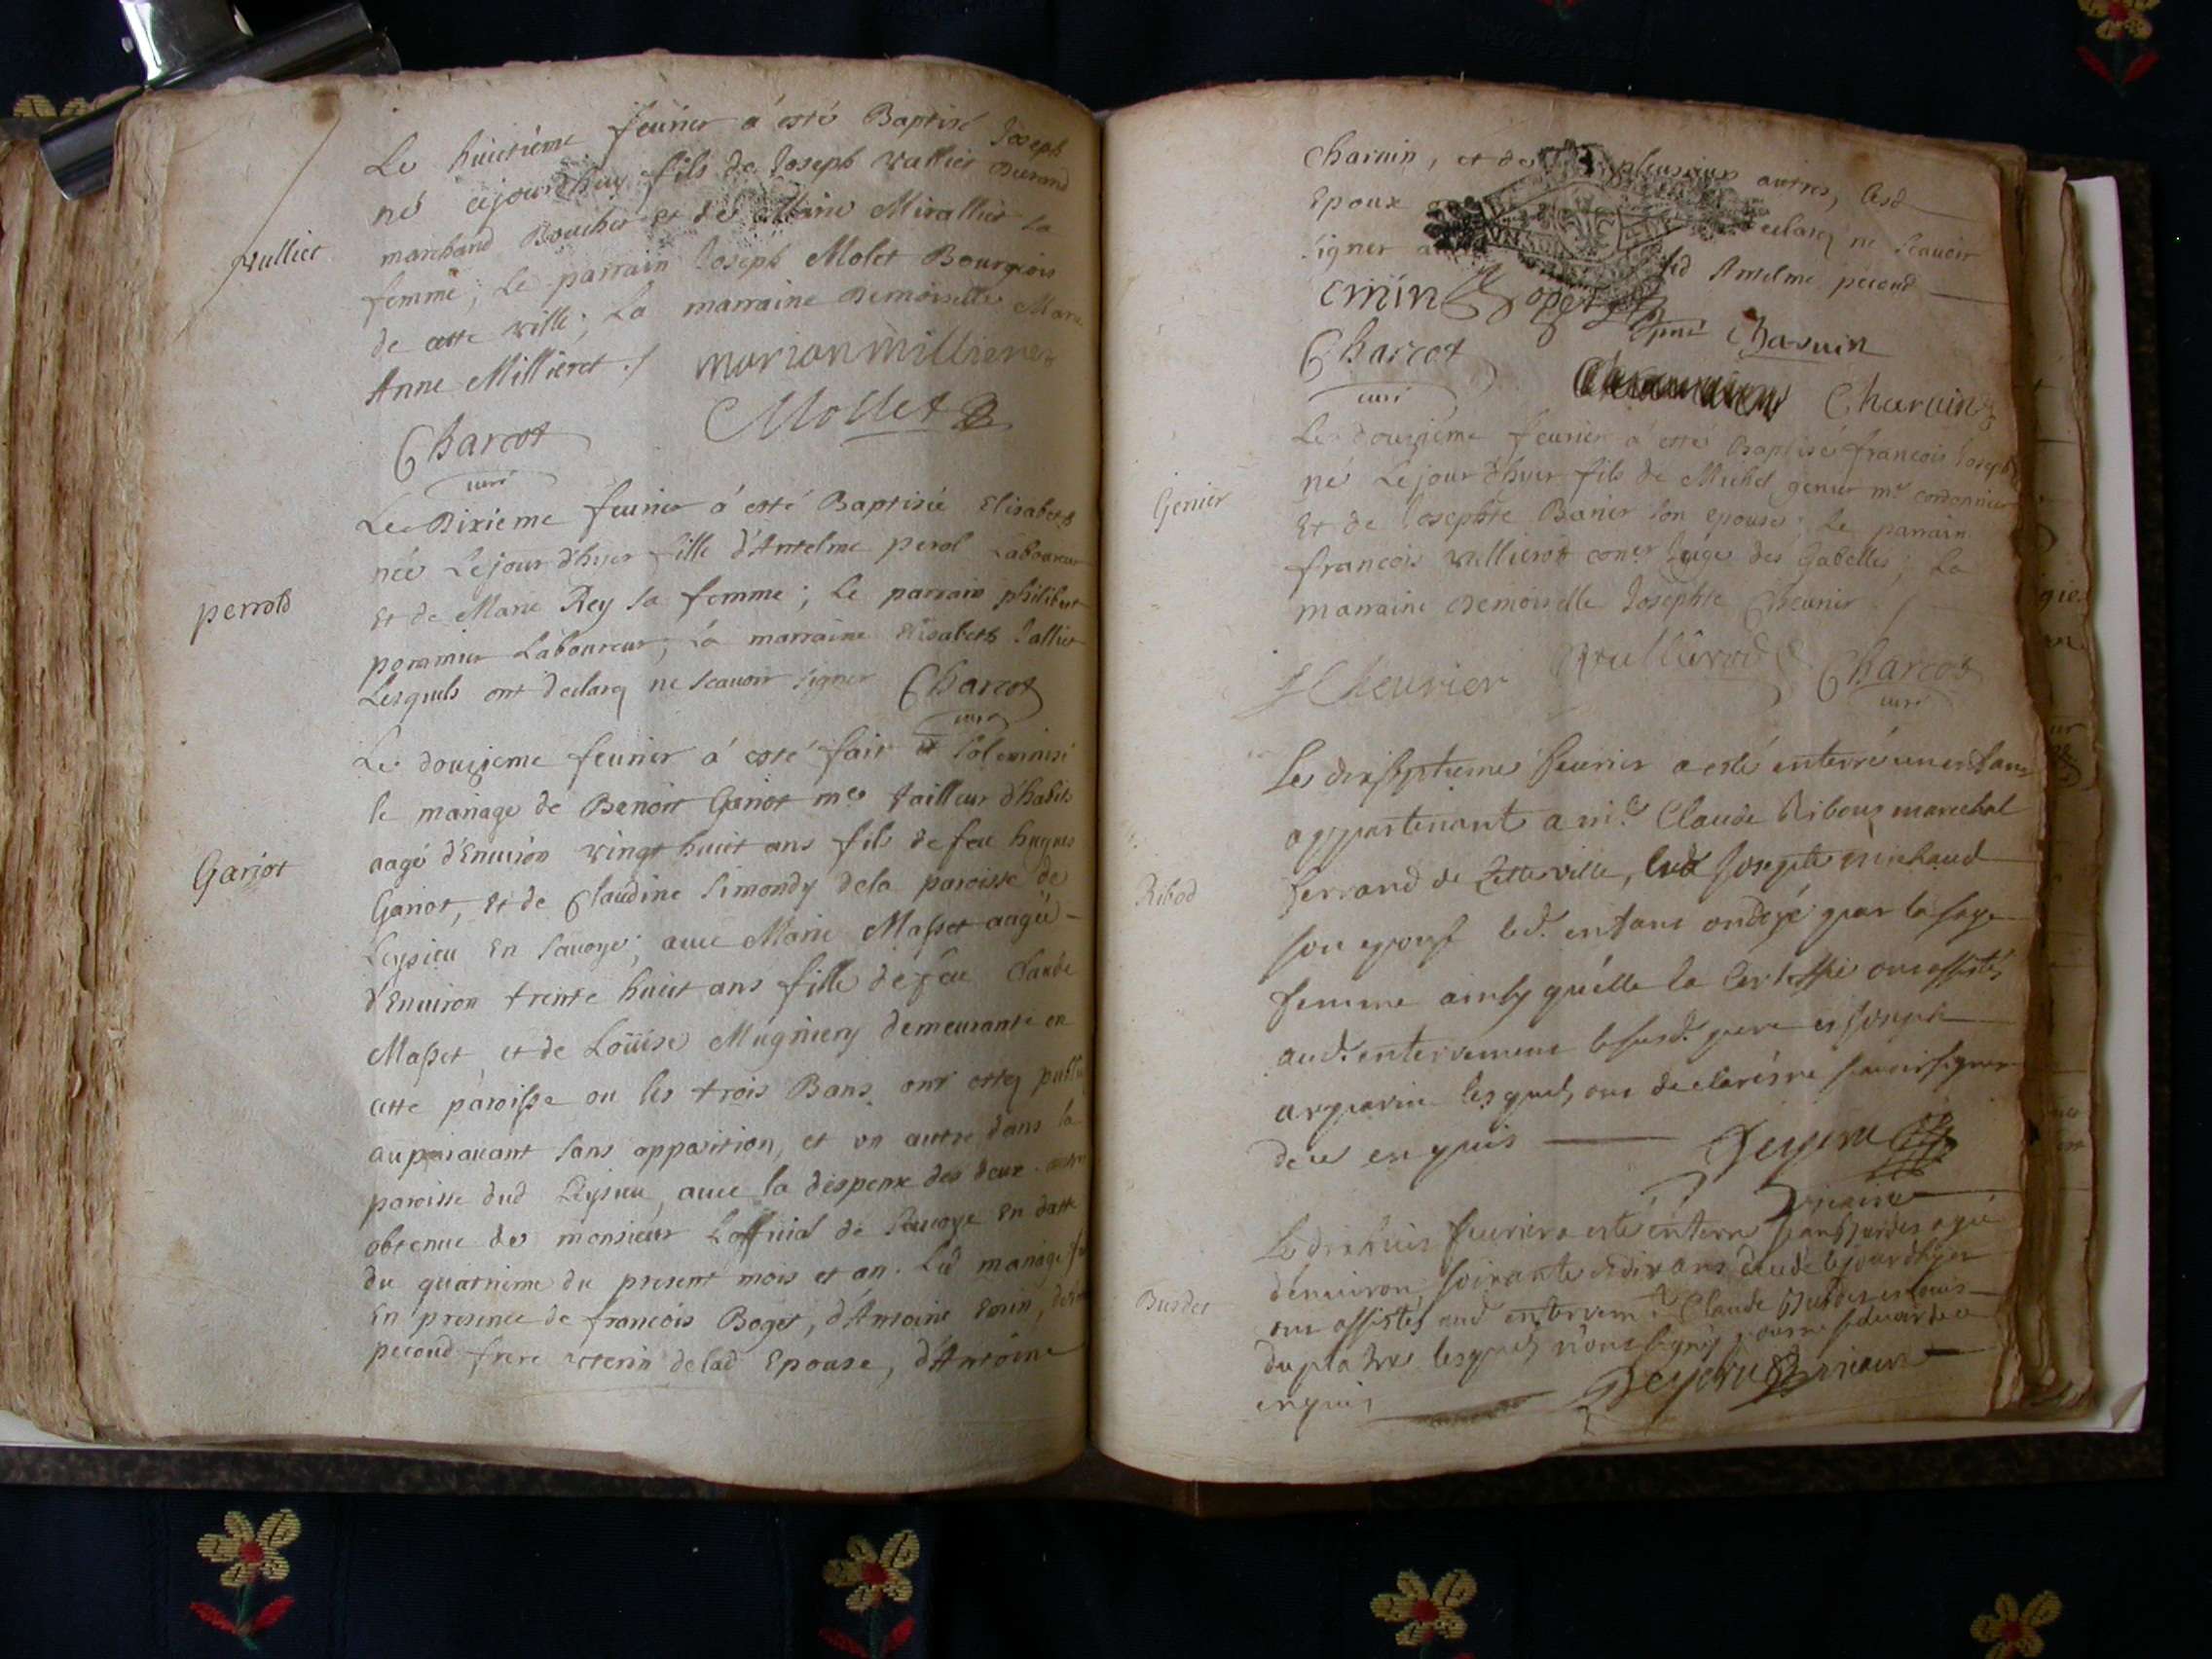 Le huictiéme feurier á esté Baptisé Joseph
né cejourdhuy fils de Joseph vullier Durand
marchand Boucher et de Marie Mirallier sa
vulliet
femme; Le parrain Joseph Molet Bourgeois
de cette ville; La marraine Demoiselle Marie
Anne Millieret ./. marian millieret
Mollet
Charcot
curé
Le Dixieme feurier á esté Baptisée Elisabeth
née Lejour d'hyer fille d'Antelme perol Laboureur
perrold
Et de Marie Rey sa femme; Le parrain philibert
pommier Laboureur, la marraine Elisabeth Jallier
Lesquels ont declaré ne scauoir signer Charcot
curé
Le douzieme feurier á esté fait et solemnisé
le mariage de Benoit Gariot me tailleur d'habits
aagé d'Enuiron vingt huict ans fils de feu hugues
Gariot
Gariot, et de Claudine Simondy dela paroisse de
Leysieu En Sauoye; auec Marie Masset aagée
d'Enuiron trente huict ans fille de feu Claude
Masset, et de Loüise Mugniery demeurante en
cette paroisse ou les trois Bans ont estez publiez
auparauant sans opposition, et un autre dans la
paroisse dud Leysieu, auec la dispense des deux autres
obtenue de monsieur Lofficial de Sauoye En datte
du quatrieme du present mois et an. Led mariage
En presence de françois Boget, d'Antoine Emin,
pecoud frere uterin delad Epouse, d'Antoine
Charuin, et de plusieurs autres, lesd
Epoux declaré ne scauoir
signer led Antelme pecoud
Emin Boget
Charuin
Charcot
curé
Charuin
Le douzieme feurier á esté Baptisé françois Joseph
né Lejour d'hyer fils de Michel genier me cordonnier
Genier
Et de Josephte Banier son epouse; Le parrain
françois vullierod coner Juge des Gabelles; La
marraine Demoiselle Josephte Cheurier ./.
J Cheurier Vullierod Charcot
curé
Le dixseptieme feurier a esté enterré un enfant
appartenant a me Claude Riboud marechal
ferrand de cette ville, et a Josephte michaud
Ribod
son epouse led. enfant ondoyé par la sage
femme ainsy quélle la certiffié ont assistés
aud. enterrement le susd. pere et Joseph
lesquels ont declarés ne scauoir signer
de ce enquis
vicaire
Le dixhuit feurier a esté enterré agé
denuiron soixante et dix ans decedé lejourdhyer
Burdet
ont assistés aud enterremt Claude et Louis
duplatre lesquels n'ont signés pour ne scauoir de ce
enquis vicaire